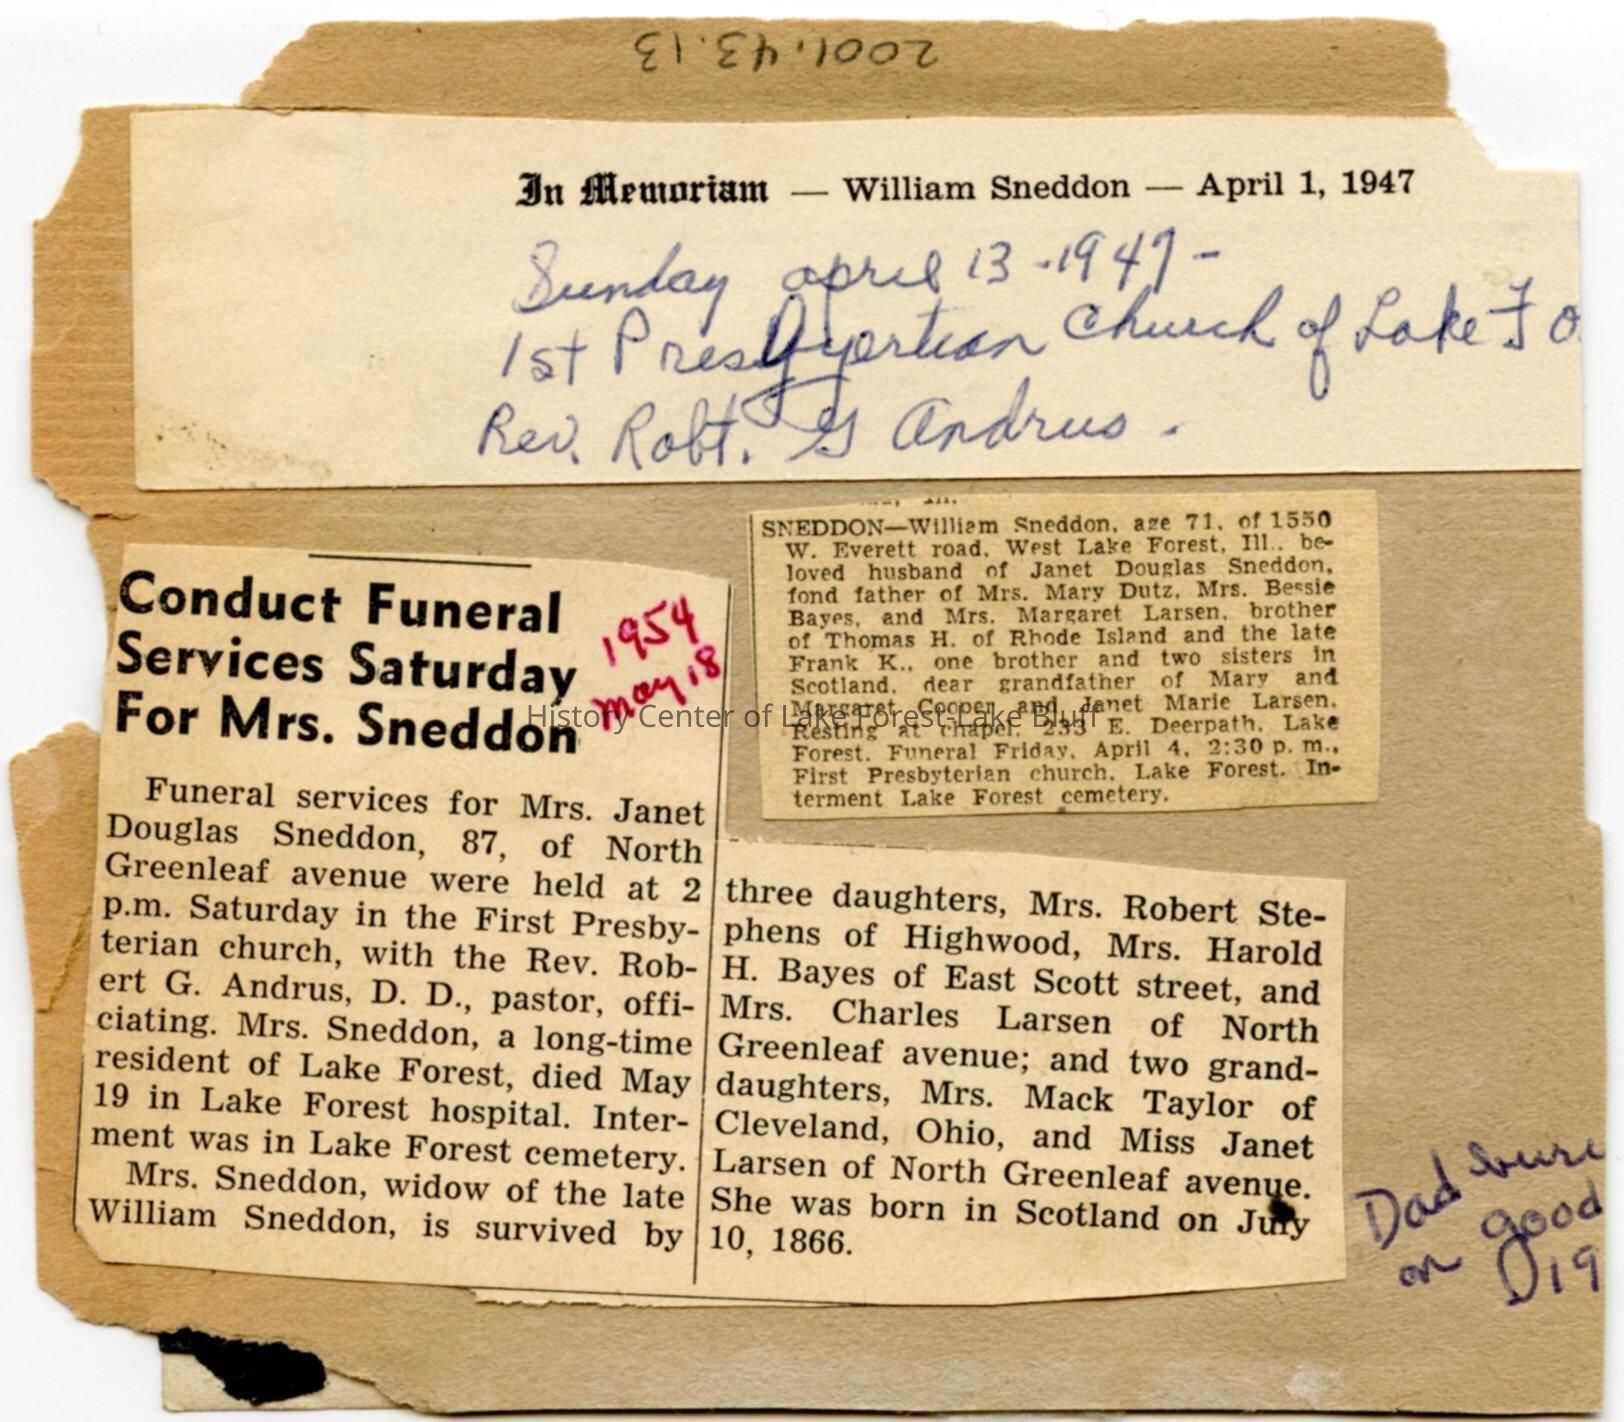 2001.43.13
In Memoriam — William Sneddon — April 1, 1947
Sunday april 13 - 1947 -
1st Church of Lake Fo
Rev. Robt. G Andrus.
Ill.
SNEDDON—William Sneddon, age 71, of 1550
W. Everett road, West Lake Forest, Ill., be-
loved husband of Janet Douglas Sneddon,
fond father of Mrs. Mary Dutz, Mrs. Bessie
Bayes, and Mrs. Margaret Larsen, brother
of Thomas H. of Rhode Island and the late
Frank K., one brother and two sisters in
Scotland, dear grandfather of Mary and
Margaret Cooper and Janet Marie Larsen.
Resting at chapel, 233 E. Deerpath, Lake
Forest. Funeral Friday, April 4, 2:30 p. m.,
First Presbyterian church, Lake Forest. In-
terment Lake Forest cemetery.
History Center of Lake Forest-Lake Bluff
Conduct Funeral
Services Saturday
For Mrs. Sneddon
1954
May 18
Funeral services for Mrs. Janet
Douglas Sneddon, 87, of North
Greenleaf avenue were held at 2
p.m. Saturday in the First Presby-
terian church, with the Rev. Rob-
ert G. Andrus, D. D., pastor, offi-
ciating. Mrs. Sneddon, a long-time
resident of Lake Forest, died May
19 in Lake Forest hospital. Inter-
ment was in Lake Forest cemetery.
Mrs. Sneddon, widow of the late
William Sneddon, is survived by
three daughters, Mrs. Robert Ste-
phens of Highwood, Mrs. Harold
H. Bayes of East Scott street, and
Mrs. Charles Larsen of North
Greenleaf avenue; and two grand-
daughters, Mrs. Mack Taylor of
Cleveland, Ohio, and Miss Janet
Larsen of North Greenleaf avenue.
She was born in Scotland on July
10, 1866.
Dad buri
on good
19